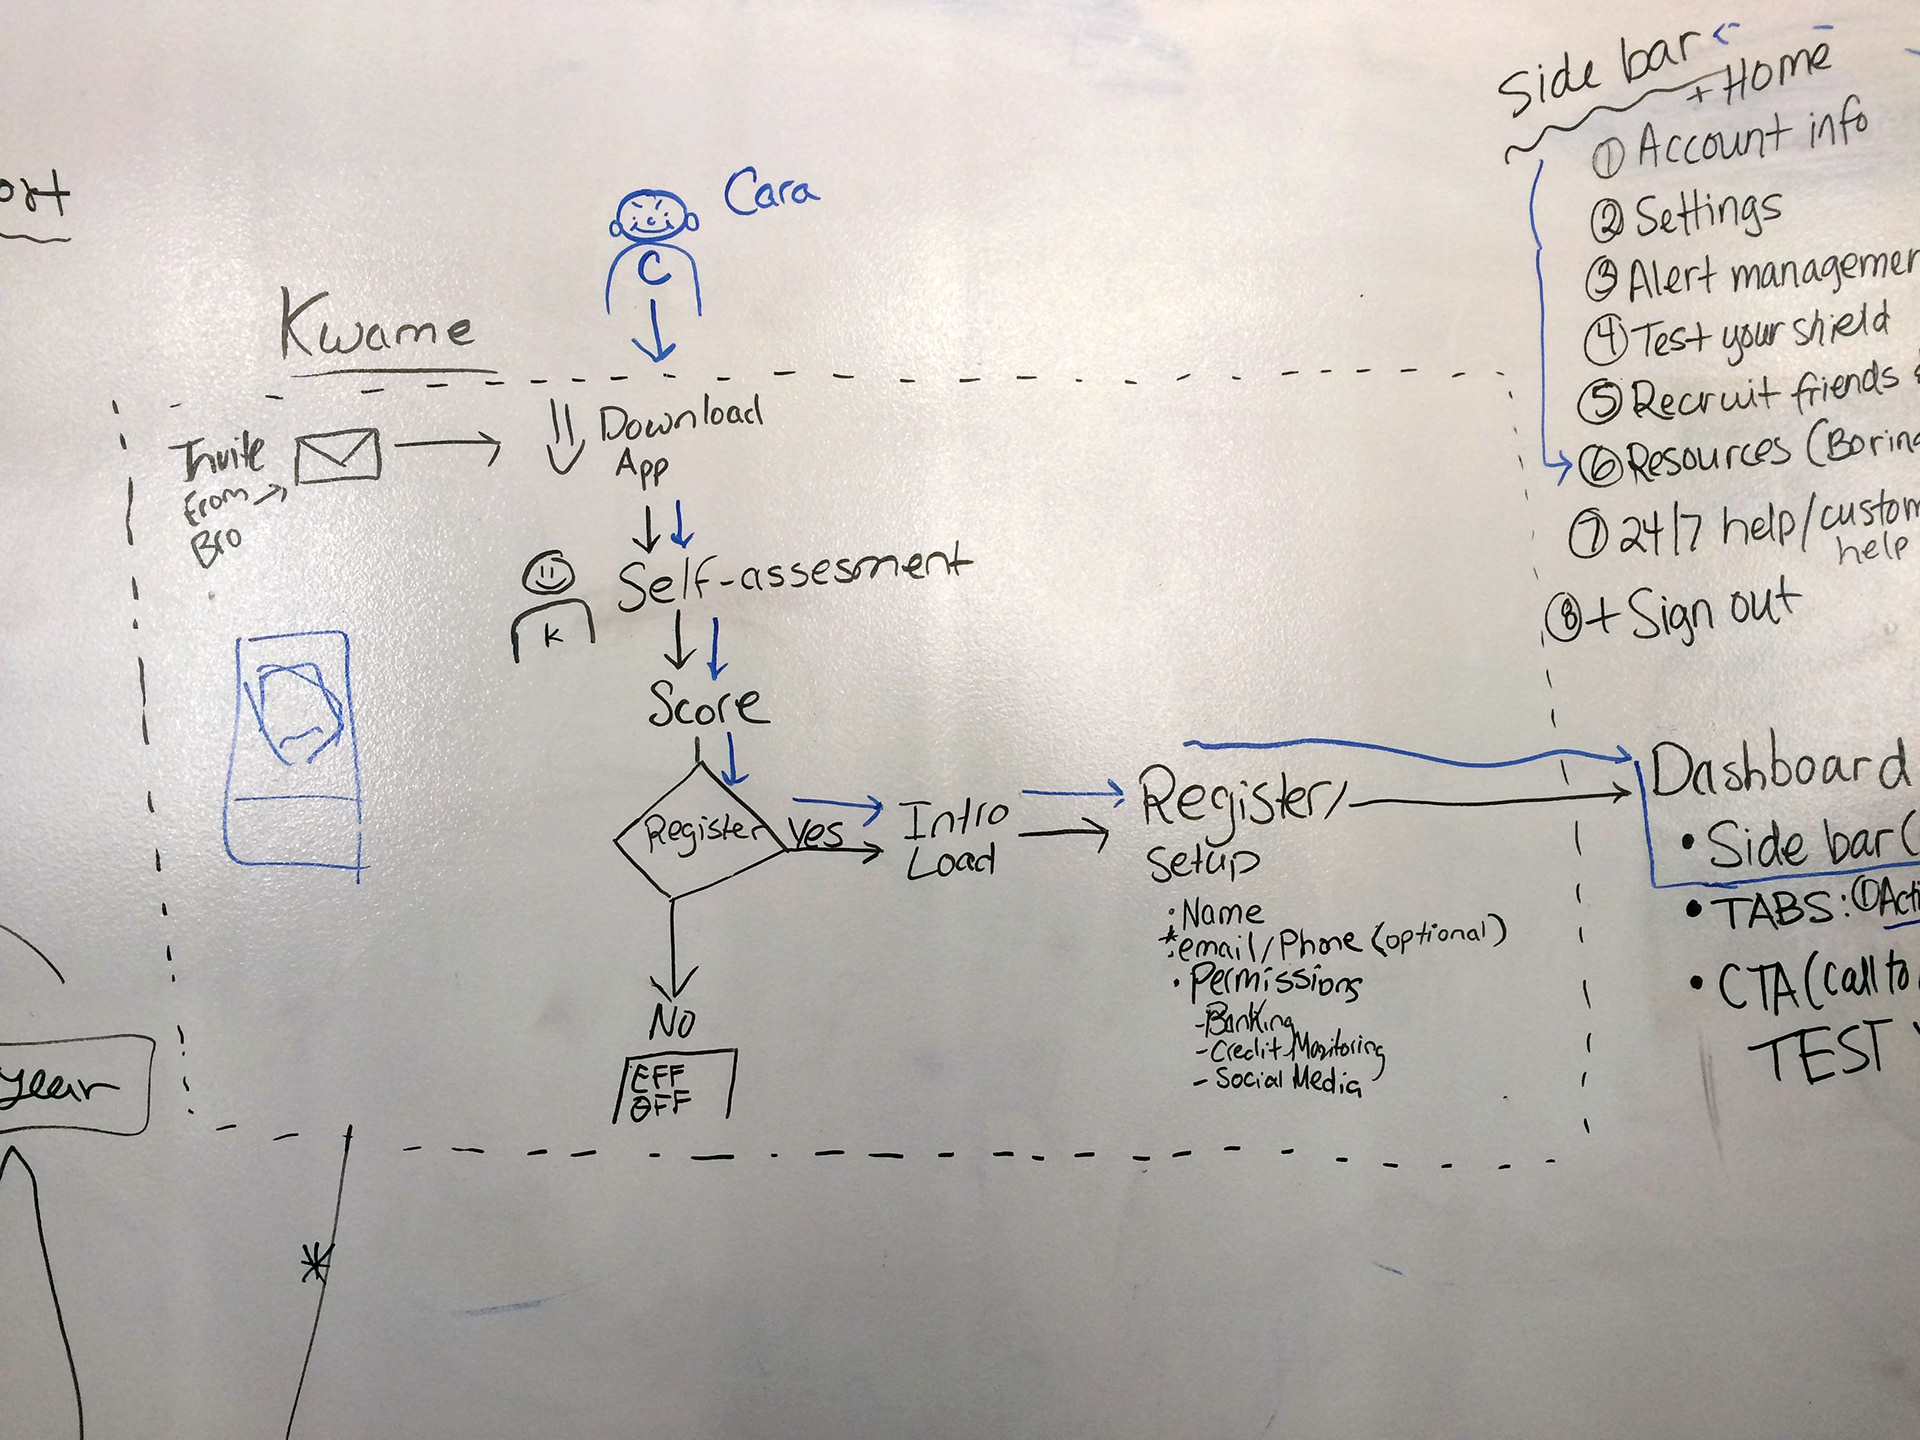 Side bar
+ Home
① Account info
② Settings
③ Alert managemen
④ Test your shield
⑤ Recruit friends
⑥ Resources (Boring
⑦ 24/7 help/custom
help
⑧ + Sign out
ort
Cara
C
Kwame
Invite
From
Bro
Download
App
Self-assesment
K
Score
Register
yes
Intro
Load
Register/
Setup
• Name
* email/Phone (optional)
• Permissions
- Banking
- Credit Monitoring
- Social Media
NO
EFF
OFF
Dashboard
• Side bar (
• TABS: ① Acti
• CTA (Call to
TEST
year
*